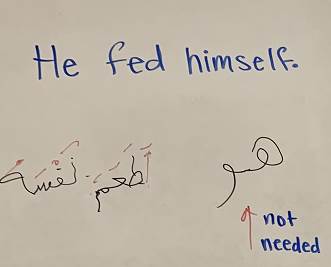 He fed himself.
هو أَطْعَمَ نَفْسَهُ
not
needed